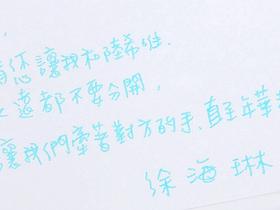 您讓我和陸希唯.
永遠都不要分開,
讓我們牽著對方的手、直至年華
徐海琳